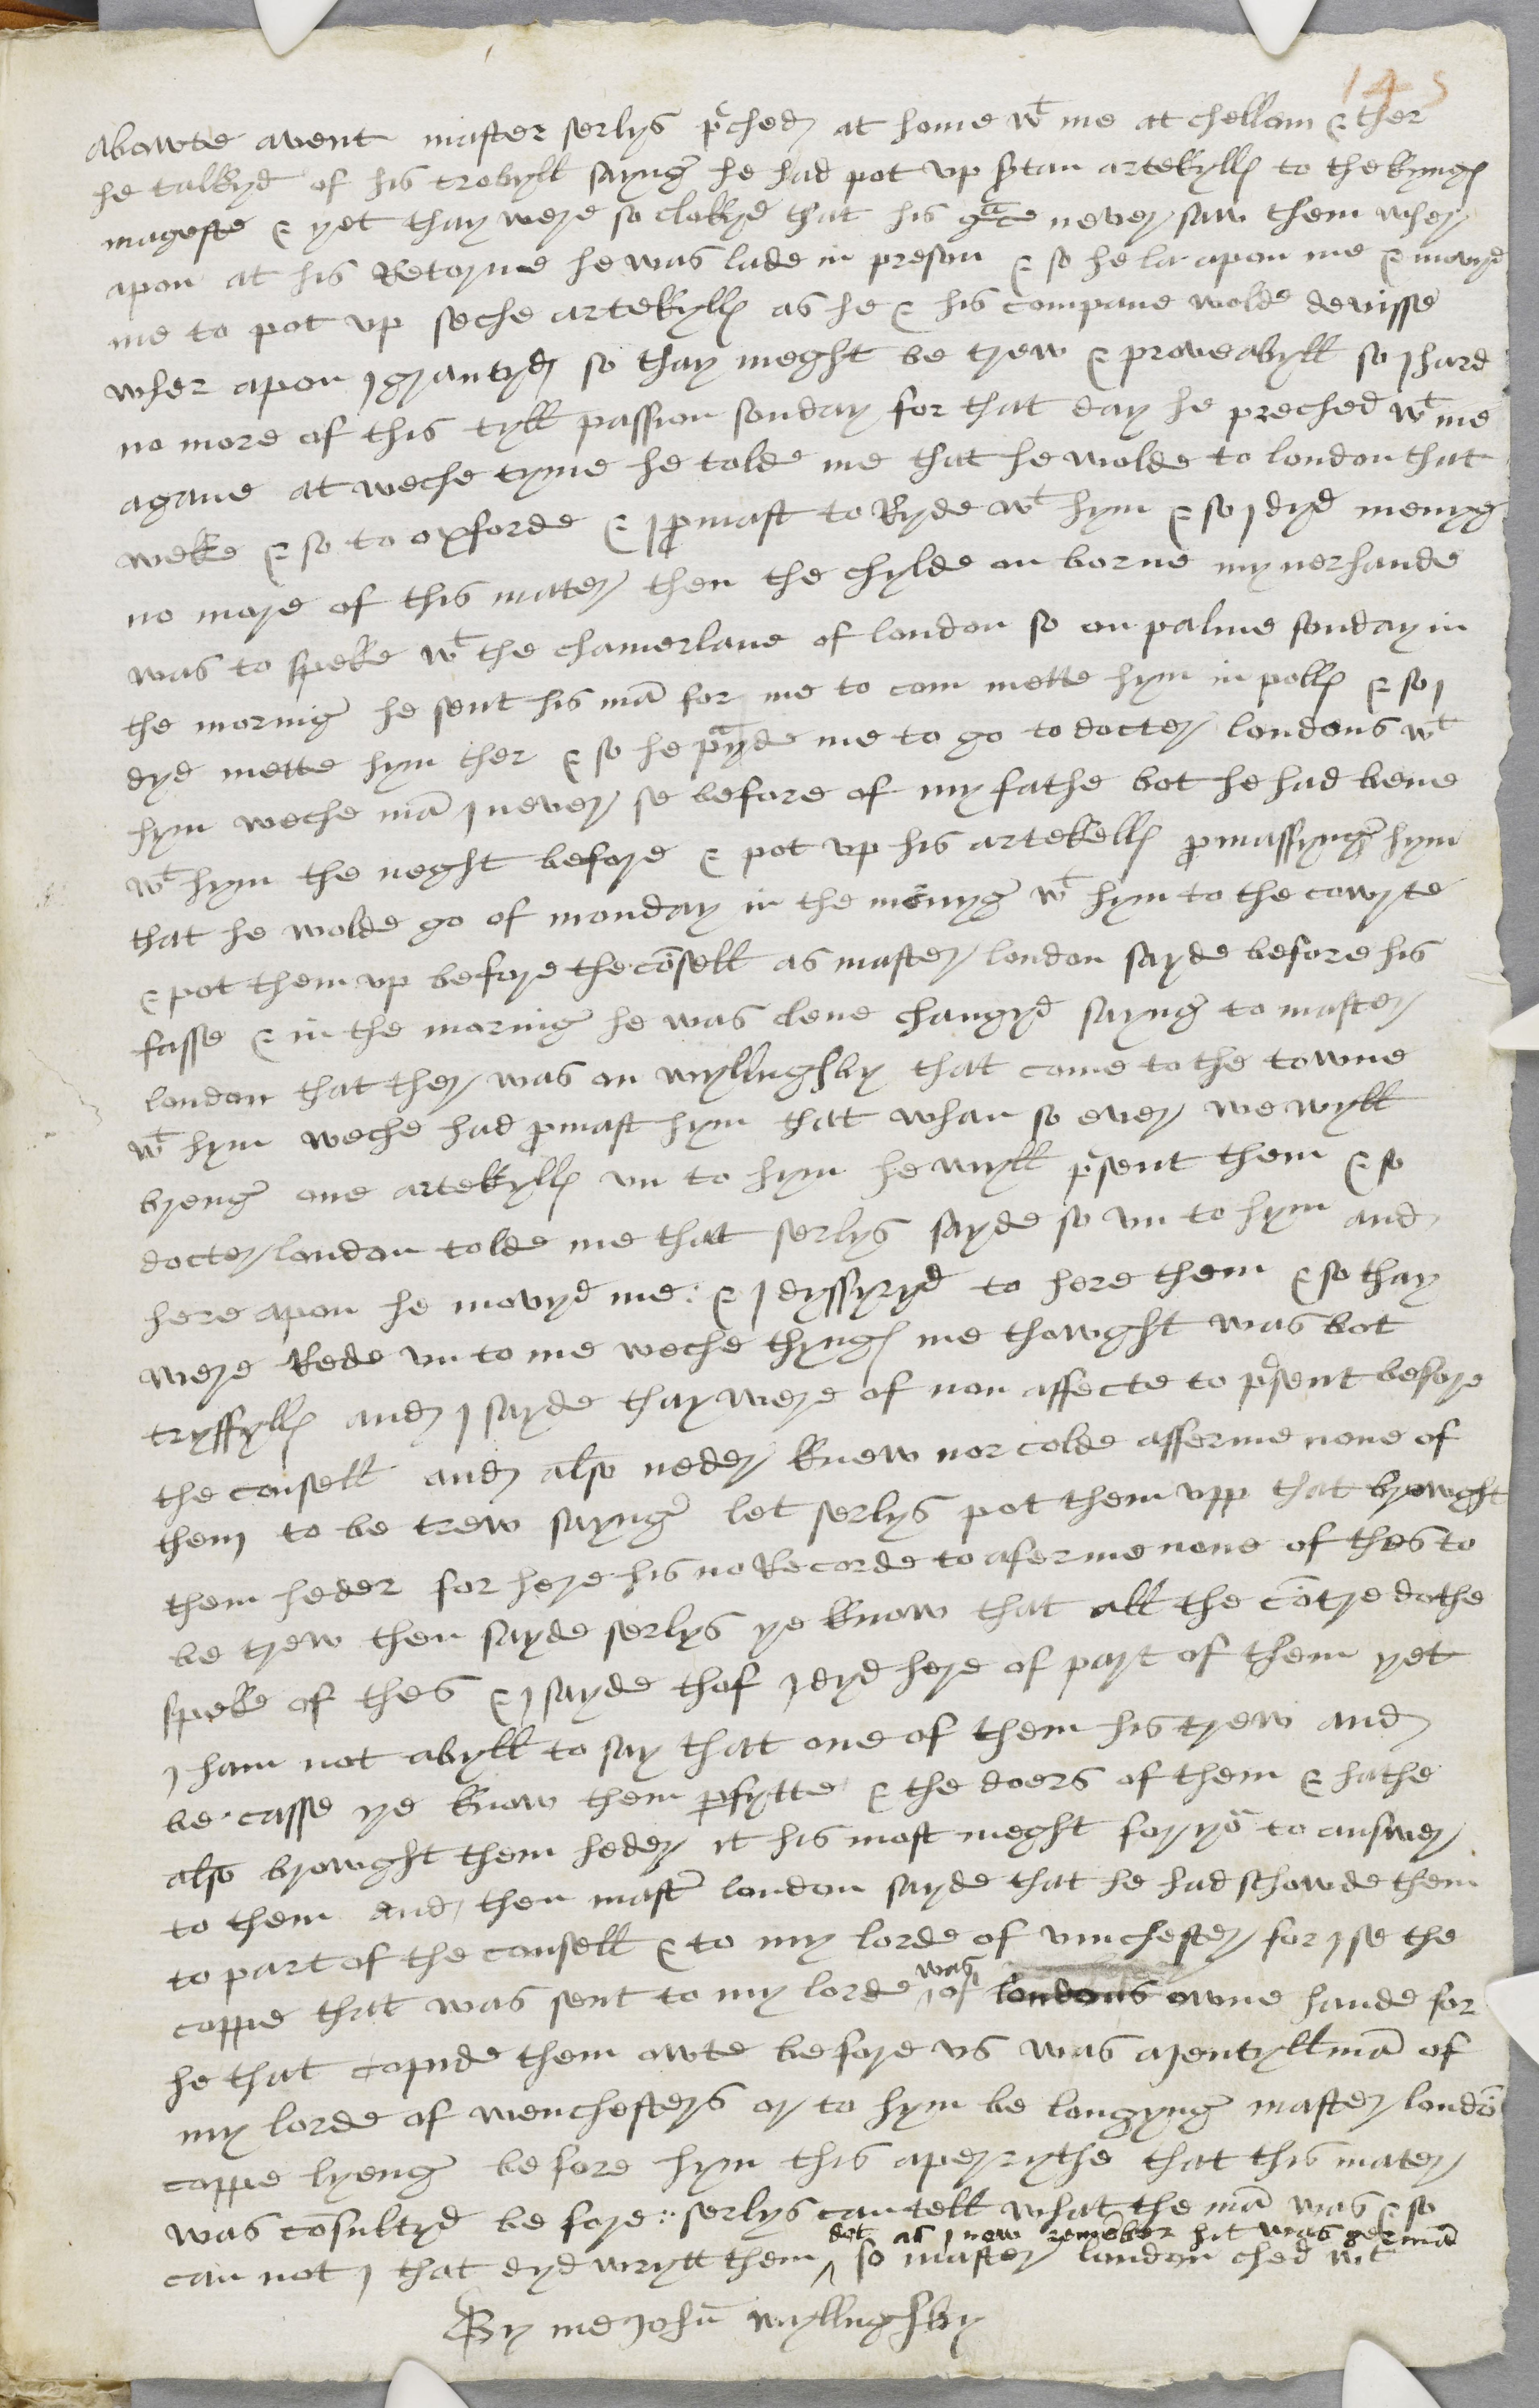 145
abowte avent master serlys p̄ched at home wt me at chellam & ther
he talkyd of his trobyll sayng he had pot vp s̄tan artekyll to the kyng
mageste & yet thay were so clokyd that his grace never saw them wher
apon at his Retorne he was lade in preson & so he la apon me & movyd
me to pot vp seche artekyll as he & his compane wolde devisse
wher apon I grantyd so thay meght be trew & proveabyll so I hard
no more of this tyll passion sonday for that day he preched wt me
agane at weche tyme he tolde me that he wolde to london that
weke & so to oxforde & I p̱mast to Ryde wt hym & so I dyd menyg
no more of this matter then the chylde on borne my nerhande
was to speke wt the chamerlane of london so on palme sonday in
the mornig he sent his mā for me to com mette hym in poll & so I
dyd mette hym ther & so he prayde me to go to docter londons wt
hym weche mā I never se before of my fathe bot he had bene
wt hym the neght before & pot vp his artekell p̱massyng hym
that he wolde go of monday in the mornyg wt hym to the cowrte
& pot them vp before the cōsell as master london sayde before his
fasse & in the mornig he was clene changyd sayng to master
london that ther was on wyllnghby that came to the towne
wt hym weche had p̱mast hym that whan so ever we wyll
breng one artekyll vn to hym he wyll p̄sent them & so
docter london tolde me that serlys sayde so vn to hym and
here apon he movyd me : & I dyssyryd to here them & so thay
were Rede vn to me weche thyng me thowght was bot
tryffyll and I sayde thay were of non affecte to p̄sent before
the consell and also neder knew nor colde afferme none of
them to be trew sayng let serlys pot them vpp that browght
them heder for here his no Recorde to aferme none of thes to
be trew then sayde serlys ye know that all the cōtre dothe
speke of thes & I sayde thof I dyd here of part of them yet
I ham not abyll to say that one of them his trew and
be casse ye know them p̱fytte & the doers of them & hathe
also browght them heder it his most meght for yō to answer
to them and then mast london sayde that he had schowde them
to part of the consell & to my lorde of vinchester for I se the
coppe that was sent to my lorde was of londons owne hande for
he that copide them owte before vs was a jentyllmā of
my lorde of wenchesters or to hym be longyng master londō
coppe lyeng be fore hym this aperrythe that this mater
was cōsultyd be fore : serlys can tell what the mā was & so
can not I that dyd wrytt them bot as I now remēber hit was germā so master london ched wt
By me John wyllnghby